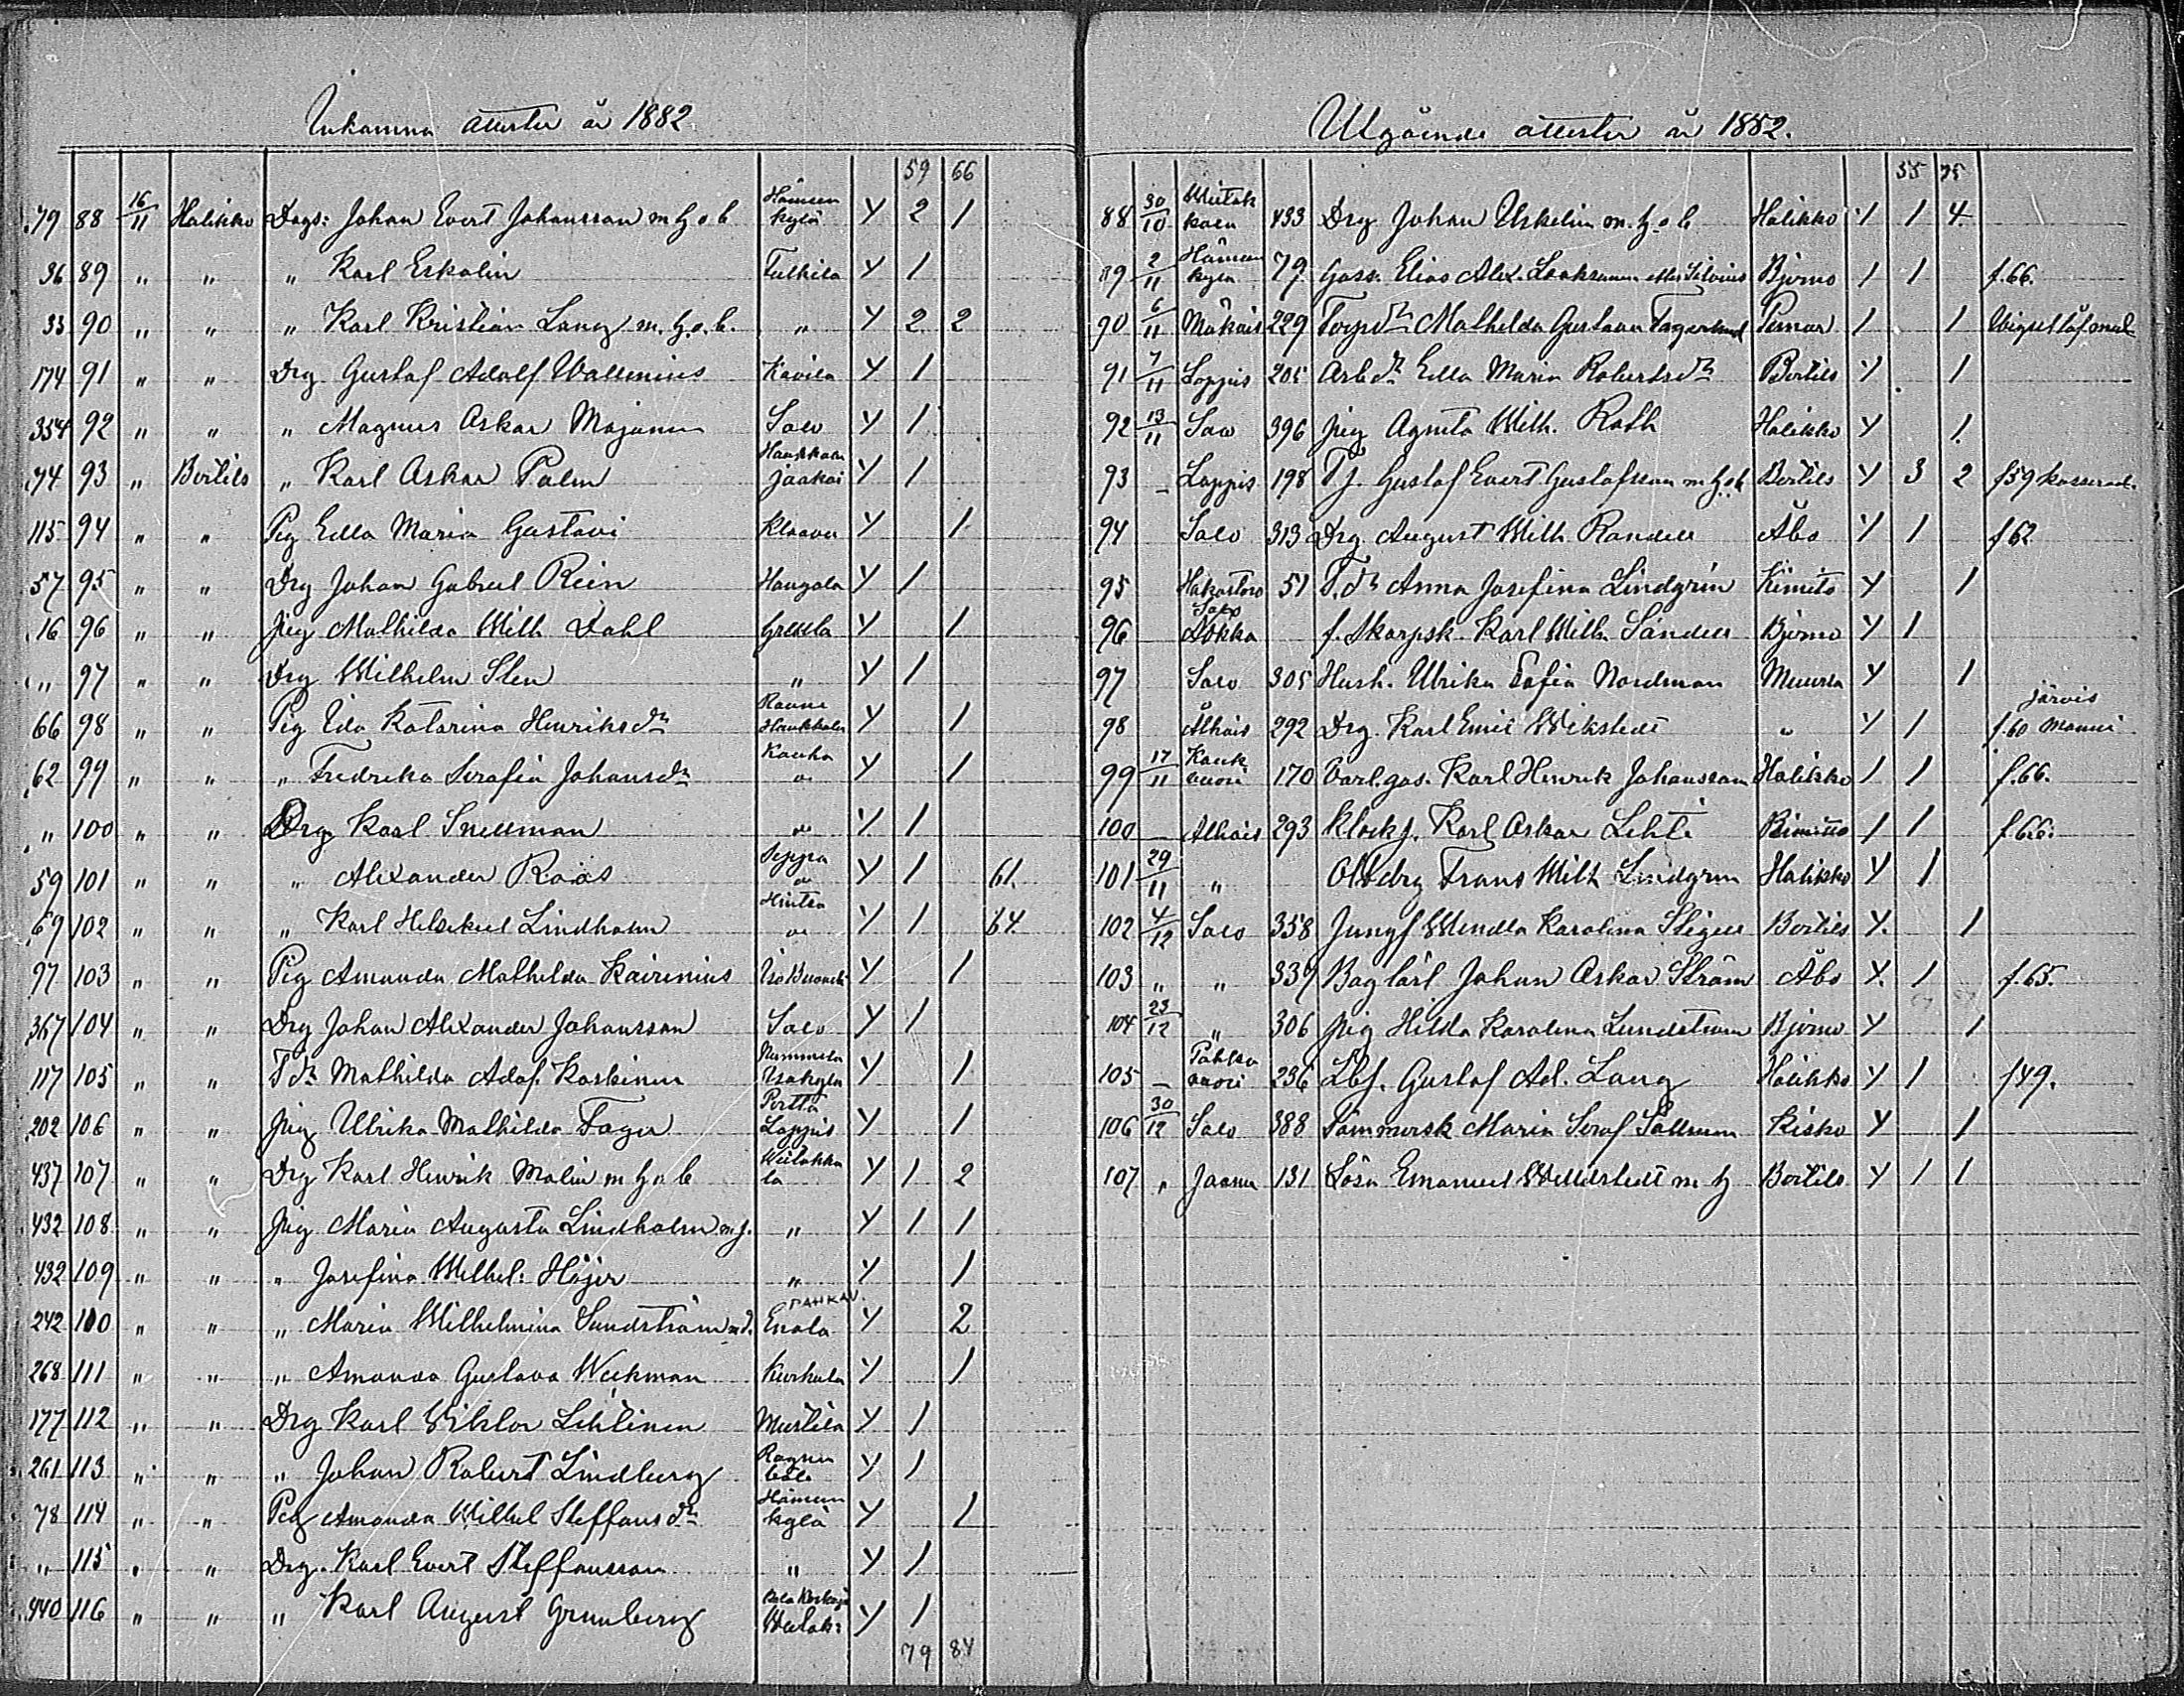 Inkomna attester år 1882.
59 66
79 88 16/11 Halikko Dags: Johan Evert Johansson m h o b Hämeen kylä Y 2 1
36 89 " " " Karl Eskolin Tulkila Y 1
33 90 " " " Karl Kristian Lang m. h. o. b. " Y 2 2
174 91 " " Drg Gustaf Adolf Wallenius Kavila Y 1
354 92 " " " Magnus Oskar Majanen Salo Y 1
74 93 " Bertils " Karl Oskar Palm Haukkala Jaakoi Y 1
115 94 " " Pig Edla Maria Gustavi Klaavu Y 1
57 95 " " Drg Johan Gabriel Rein Hangola Y 1
16 96 " " Pig Mathilda Wilh Dahl Grekela Y 1
" 97 " " Drg Wilhelm Slen " Y 1
66 98 " " Pig Ida Katarina Henriksdr Raune Haukkala Y 1
62 99 " " " Fredrika Serafia Johansdr Kauha " Y 1
" 100 " " Drg Karl Snellman " Y 1
59 101 " " " Alexander Roos Seppä " Y 1 61.
69 102 " " " Karl Heleskiel Lindholm Hintsa " Y 1 64
97 103 " " Pig Amanda Mathilda Kairenius Y 1
367 104 " " Drg Johan Alexander Johansson Salo Y 1
117 105 " " T dr Mathilda Adof. Koskinen Nummela Isokylä Y 1
202 106 " " Pig Ulrika Mathilda Fager Perttä Loppis Y 1
437 107 " " Drg Karl Henrik Malin m h o b Wiitakka la Y 1 2
432 108 " " Pig Maria Augusta Lindholm m g. " Y 1 1
432 109 " " " Josefina Wilhel: Höjer " Y 1
242 110 " " " Maria Wilhelmina Sundström m d. PAHKAV. Enola Y 2
268 111 " " " Amanda Gustava Weckman Kurkula Y 1
177 112 " " Drg Karl Wiktor Lehtinen Mustila Y 1
261 113 " " " Johan Robert Lindberg Ragnu böle Y 1
78 114 " " Pig Amanda Wilhel Steffansdr Hämeen kylä Y 1
" 115 " " Drg. Karl Evert Steffansson " Y 1
440 116 " " " Karl August Grunberg Y 1
79 84
Utgående attester år 1882.
35 75
88 30/10 433 Drg Johan Uskelin m. h. o b Halikko Y 1 4
89 2/11 Hämeen kylä 79 Goss. Elias Alex. Laaksonen eller Silvius Bjerno 1 1 f. 66.
90 6/11 Mökais 229 Torpdr Mathilda Gustava Fagerlund Pemar 1 1
91 7/11 Loppis 205 Arb dr Edla Maria Robertsdr Bertils Y 1
92 13/11 Salo 396 Pig Agneta Wilh. Roth Halikko Y 1
93 – Loppis 198 Tj. Gustaf Evert Gustafsson m h o b Bertils Y 3 2 f 59 kasserad.
94 Salo 313 Drg August Wilh Randell Åbo Y 1 f 62
95 Hakastaro 51 T. dr Anna Josefina Lindgrin Kimito Y 1
96 f. Skarpsk. Karl Wilh. Sandell Bjerno Y 1
97 Salo 305 Hush. Ulrika Sofia Nordman Muurla Y 1
98 Alhais 292 Drg. Karl Emil Wikstedt " Y 1 f. 60 Järvis Manni
99 17/11 Kauk vuori 170 Varl. gos. Karl Henrik Johansson Halikko 1 1 f. 66.
100 – Alhais 293 Klockj. Karl Oskar Lehti 1 1 f. 66.
101 29/11 " Obl drg Frans Wilh Lindgren Halikko Y 1
102 4/12 Salo 358 Jungf Wendla Karolina Stigell Bertils Y. 1
103 " " 339 Bag lärl Johan Oskar Ström Åbo Y. 1 f. 65.
104 23/12 " 306 Pig Hilda Karolina Lundström Bjerno Y 1
105 – Pahka vuori 236 Lbf. Gustaf Ad. Lang Halikko Y 1 f 49.
106 30/12 Salo 388 Maria Seraf Sallman Kisko Y 1
107 " Joensu 131 Lösa Emanuel Wedelstedt m h Bertils Y 1 1